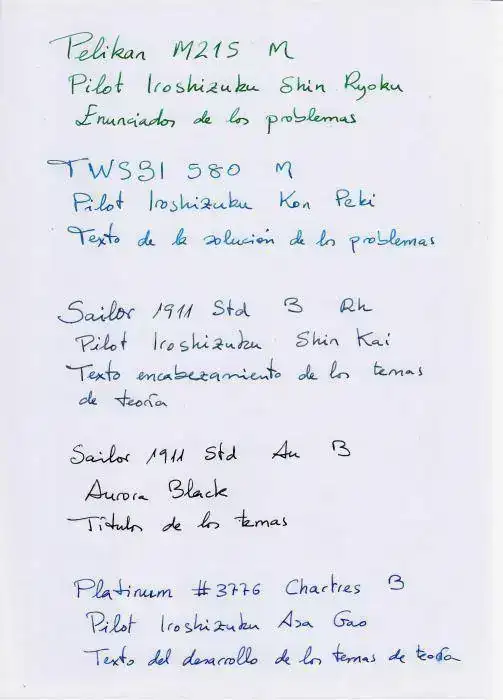 Pelikan M215 M
Pilot Iroshizuku Shin Ryoku
Enunciados de los problemas
TWSBI 580 M
Pilot Iroshizuku Kon Peki
Texto de la solución de los problemas
Sailor 1911 Std B Rh
Pilot Iroshizuku Shin Kai
Texto encabezamiento de los temas
de teoría
Sailor 1911 Std Au B
Aurora Black
Títulos de los temas
Platinum #3776 Chartres B
Pilot Iroshizuku Asa Gao
Texto del desarrollo de los temas de teoría